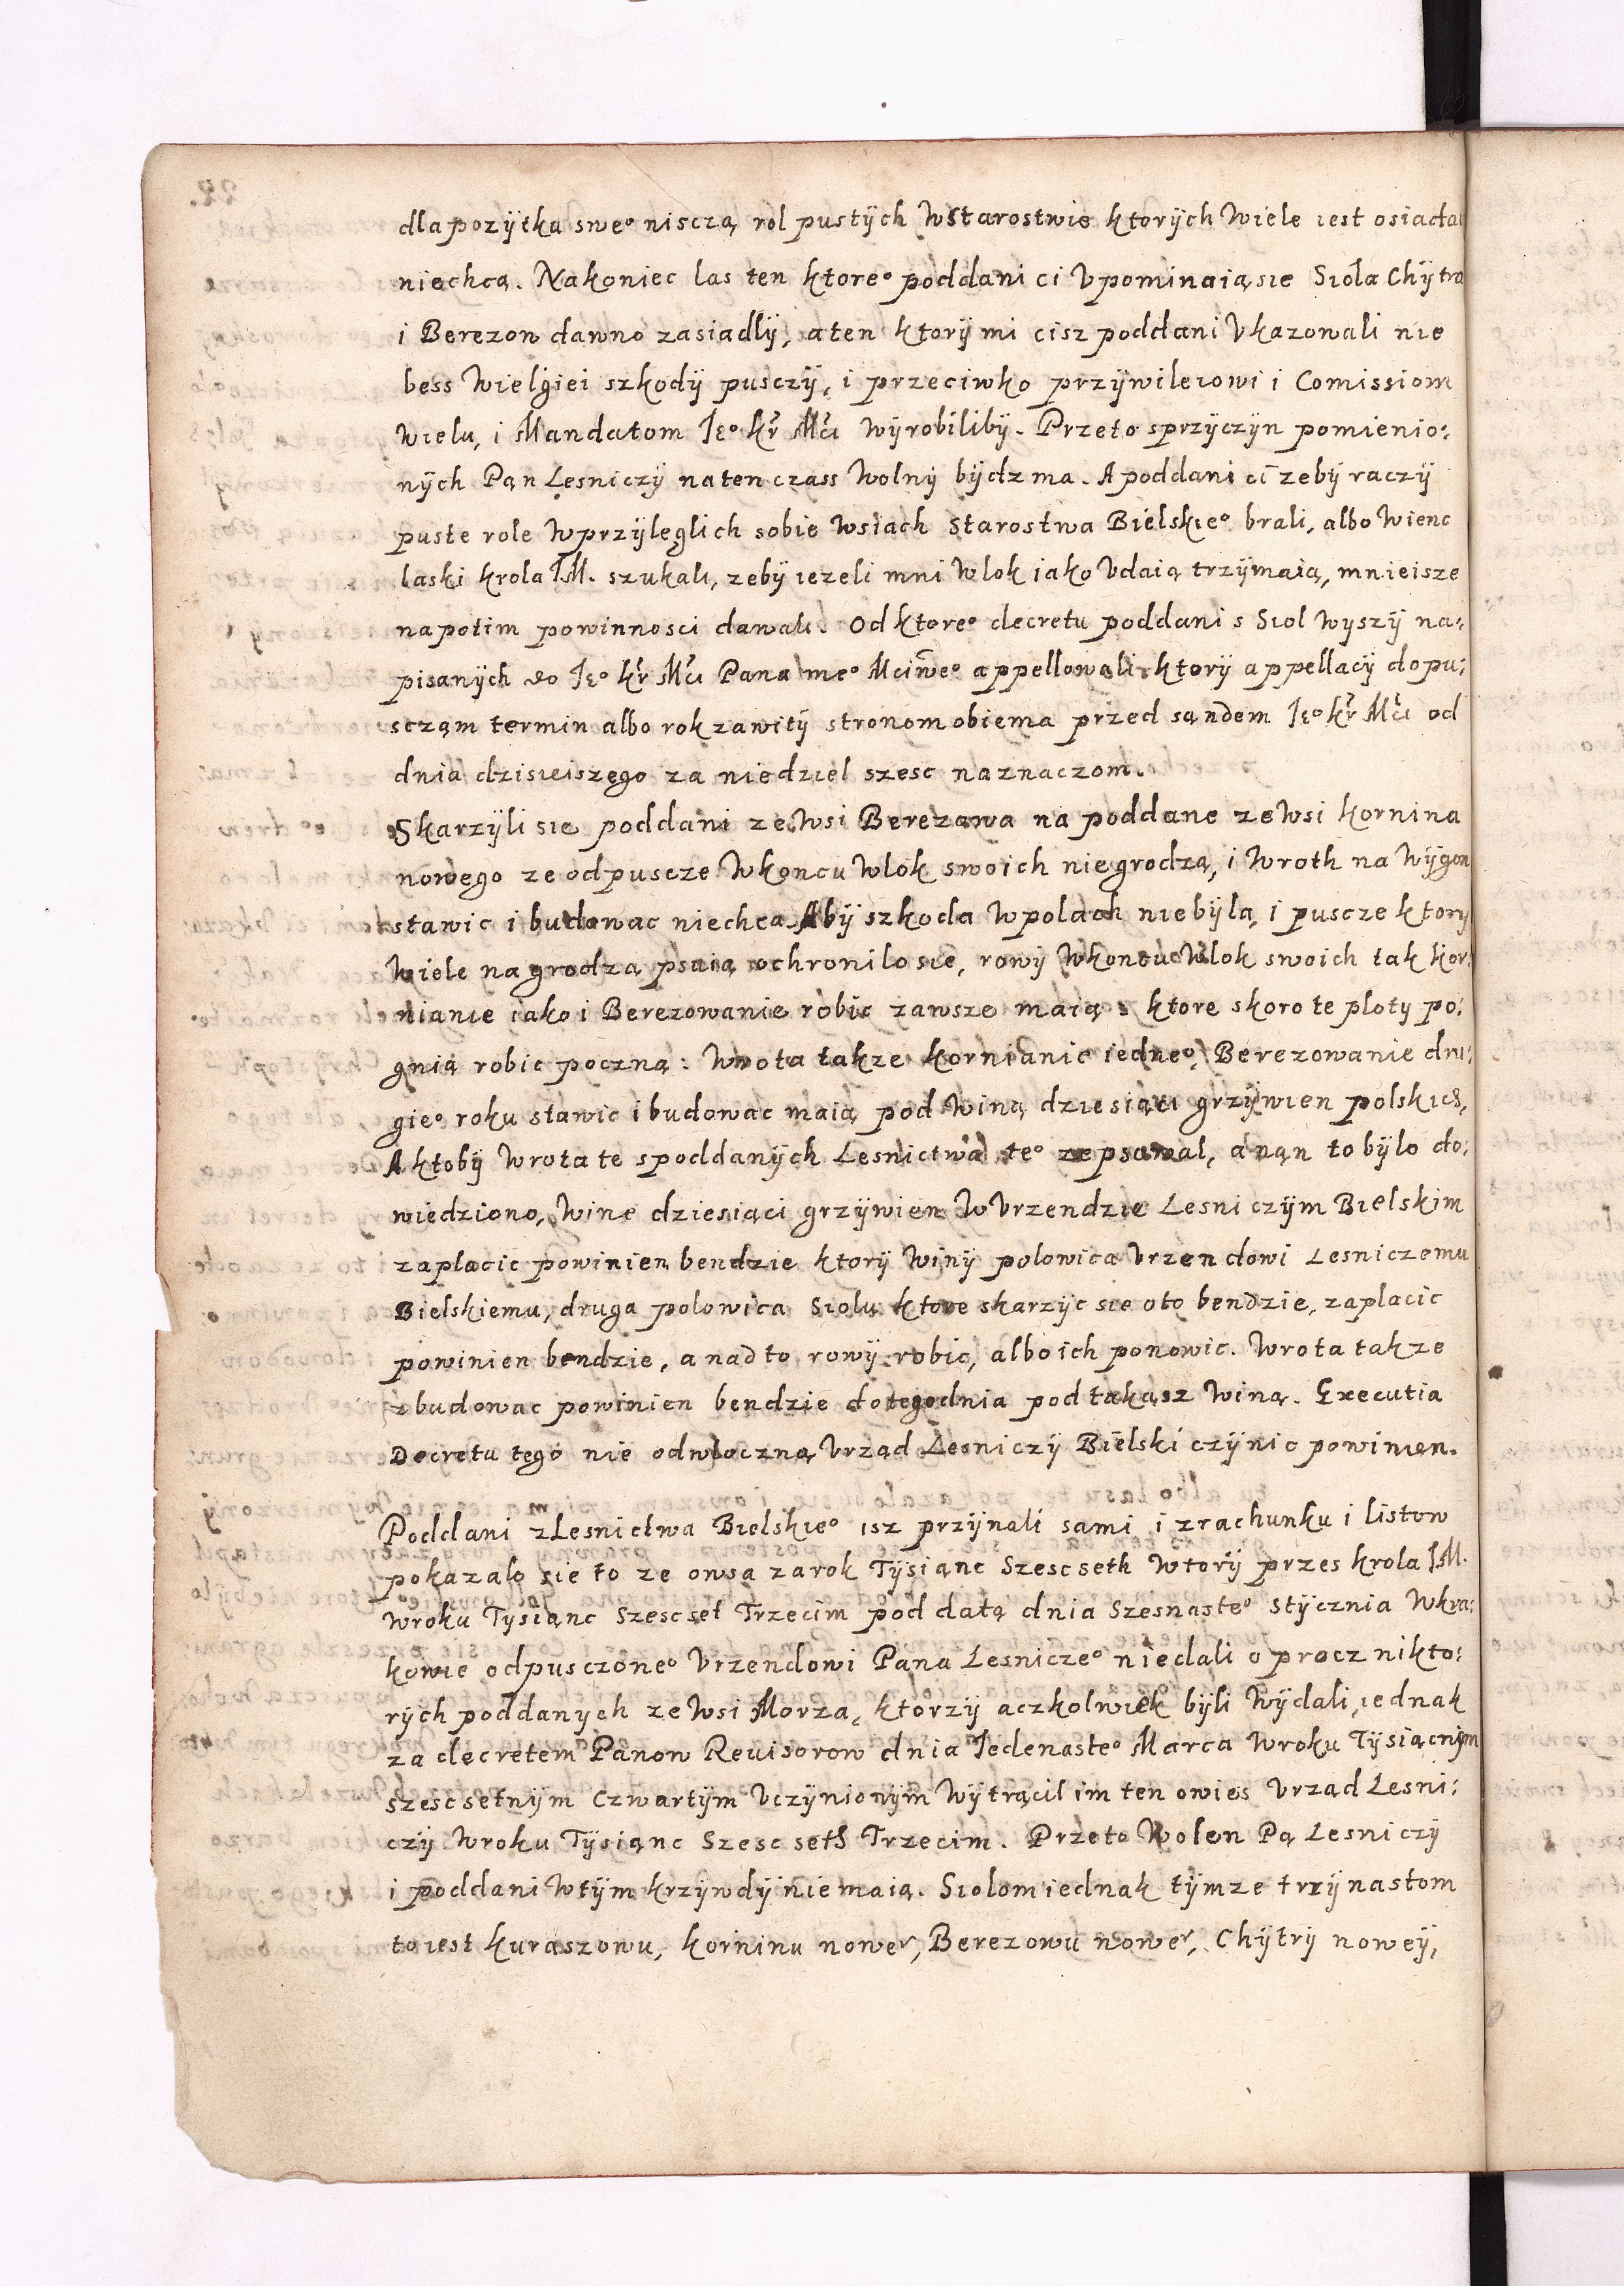 dla pozÿtku sweº nisczą rol pustÿch w Starostwie ktorÿch wiele iest osiadac
niechcą. Nakoniec las ten ktoreº poddani ci Vpominaią sie Siola Chÿtra
i Berezow dawno zasiadlÿ, a ten ktorÿ mi cisz poddani Vkazowali nie
bess wielgiei szkodÿ pusczÿ, i przeciwko przÿwileiowi i Comissiom
wielu, i Mandatom Ieº kr Mci wÿrobilibÿ. Przeto sprzÿczÿn pomienio:
nÿch Pan Lesniczÿ na ten czass wolnÿ bÿdz ma. A poddani ci zebÿ raczÿ
puste role w przÿleglich sobie wsiach Starostwa Bielskieº brali, albo wienc
laski krola IM. szukali, zebÿ iezeli mni wlok iako Vdaią trzÿmaią, mnieisze
napotim powinnosci dawali. Od ktoreº decretu poddani s Siol wyszÿ na:
pisanÿch do Ieº kr Mci Pana meº Mciweº appellowali, ktorÿ appellacÿ dopu:
sczam termin albo rok zawitÿ stronom obiema przed sądem Ieº kr Mci od
dnia dzisieiszego za niedziel szesc naznaczom.
Skarzÿli sie poddani ze wsi Berezowa na poddane ze wsi kornina
nowego ze od puscze w koncu wlok swoich niegrodzą, i wroth na wÿgon
stawic i budowac niechcą. Abÿ szkoda w polach niebÿla, i puscze ktorÿ
wiele na grodzą psaią ochronilo sie, rowÿ w koncu wlok swoich tak kor:
nianie iako i Berezowanie robic zawsze maią: ktore skoro te ploty po:
gnią robic poczną: wrota takze kornianie iedneº, Berezowanie dru:
gieº roku stawic i budowac maią pod winą dziesiąci grzÿwien polskich,
A ktobÿ wrota te spoddanÿch Lesnictwa teº zepsawal, a nan to bÿlo do:
wiedziono, wine dziesiąci grzÿwien w Vrzendzie Lesniczÿm Bielskim
zaplacic powinien bendzie ktorÿ winÿ polowica Vrzendowi Lesniczemu
Bielskiemu, druga polowica Siolu ktore skarzÿc sie oto bendzie, zaplacic
powinien bendzie, a nad to rowÿ robic, albo ich ponowic. Wrota takze
zbudowac powinien bendzie do tegodnia pod takąsz winą. Executia
Decretu tego nie odwloczną Vrząd Lesniczÿ Bielski czÿnic powinien.
Poddani z Lesnictwa Bielskieº isz przÿnali sami i z rachunku i listow
pokazalo sie to ze owsa za rok Tÿsianc Szescseth wtorÿ przes krola IM.
w roku Tysianc Szescset Trzecim pod datą dnia Szesnasteº Stÿcznia w kra:
kowie odpusczoneº Vrzendowi Pana Lesniczeº niedali oprocz nikto:
rÿch poddanych ze wsi Morza, ktorzÿ aczkolwiek bÿli wÿdali, iednak
za decretem Panow Reuisorow dnia Iedenasteº Marca w roku Tÿsiącnÿm
szescsetnÿm Czwartÿm Vczÿnionÿm wÿtrącil im ten owies Vrząd Lesni:
czÿ w roku Tÿsianc Szescseth Trzecim. Przeto wolen Pą Lesniczÿ
i poddani w tÿm krzÿwdÿ nie maią. Siolom iednak tÿmze trzÿnastom
to iest kuraszowu, korninu noweº, Berezowu noweº, Chÿtrÿ noweÿ,